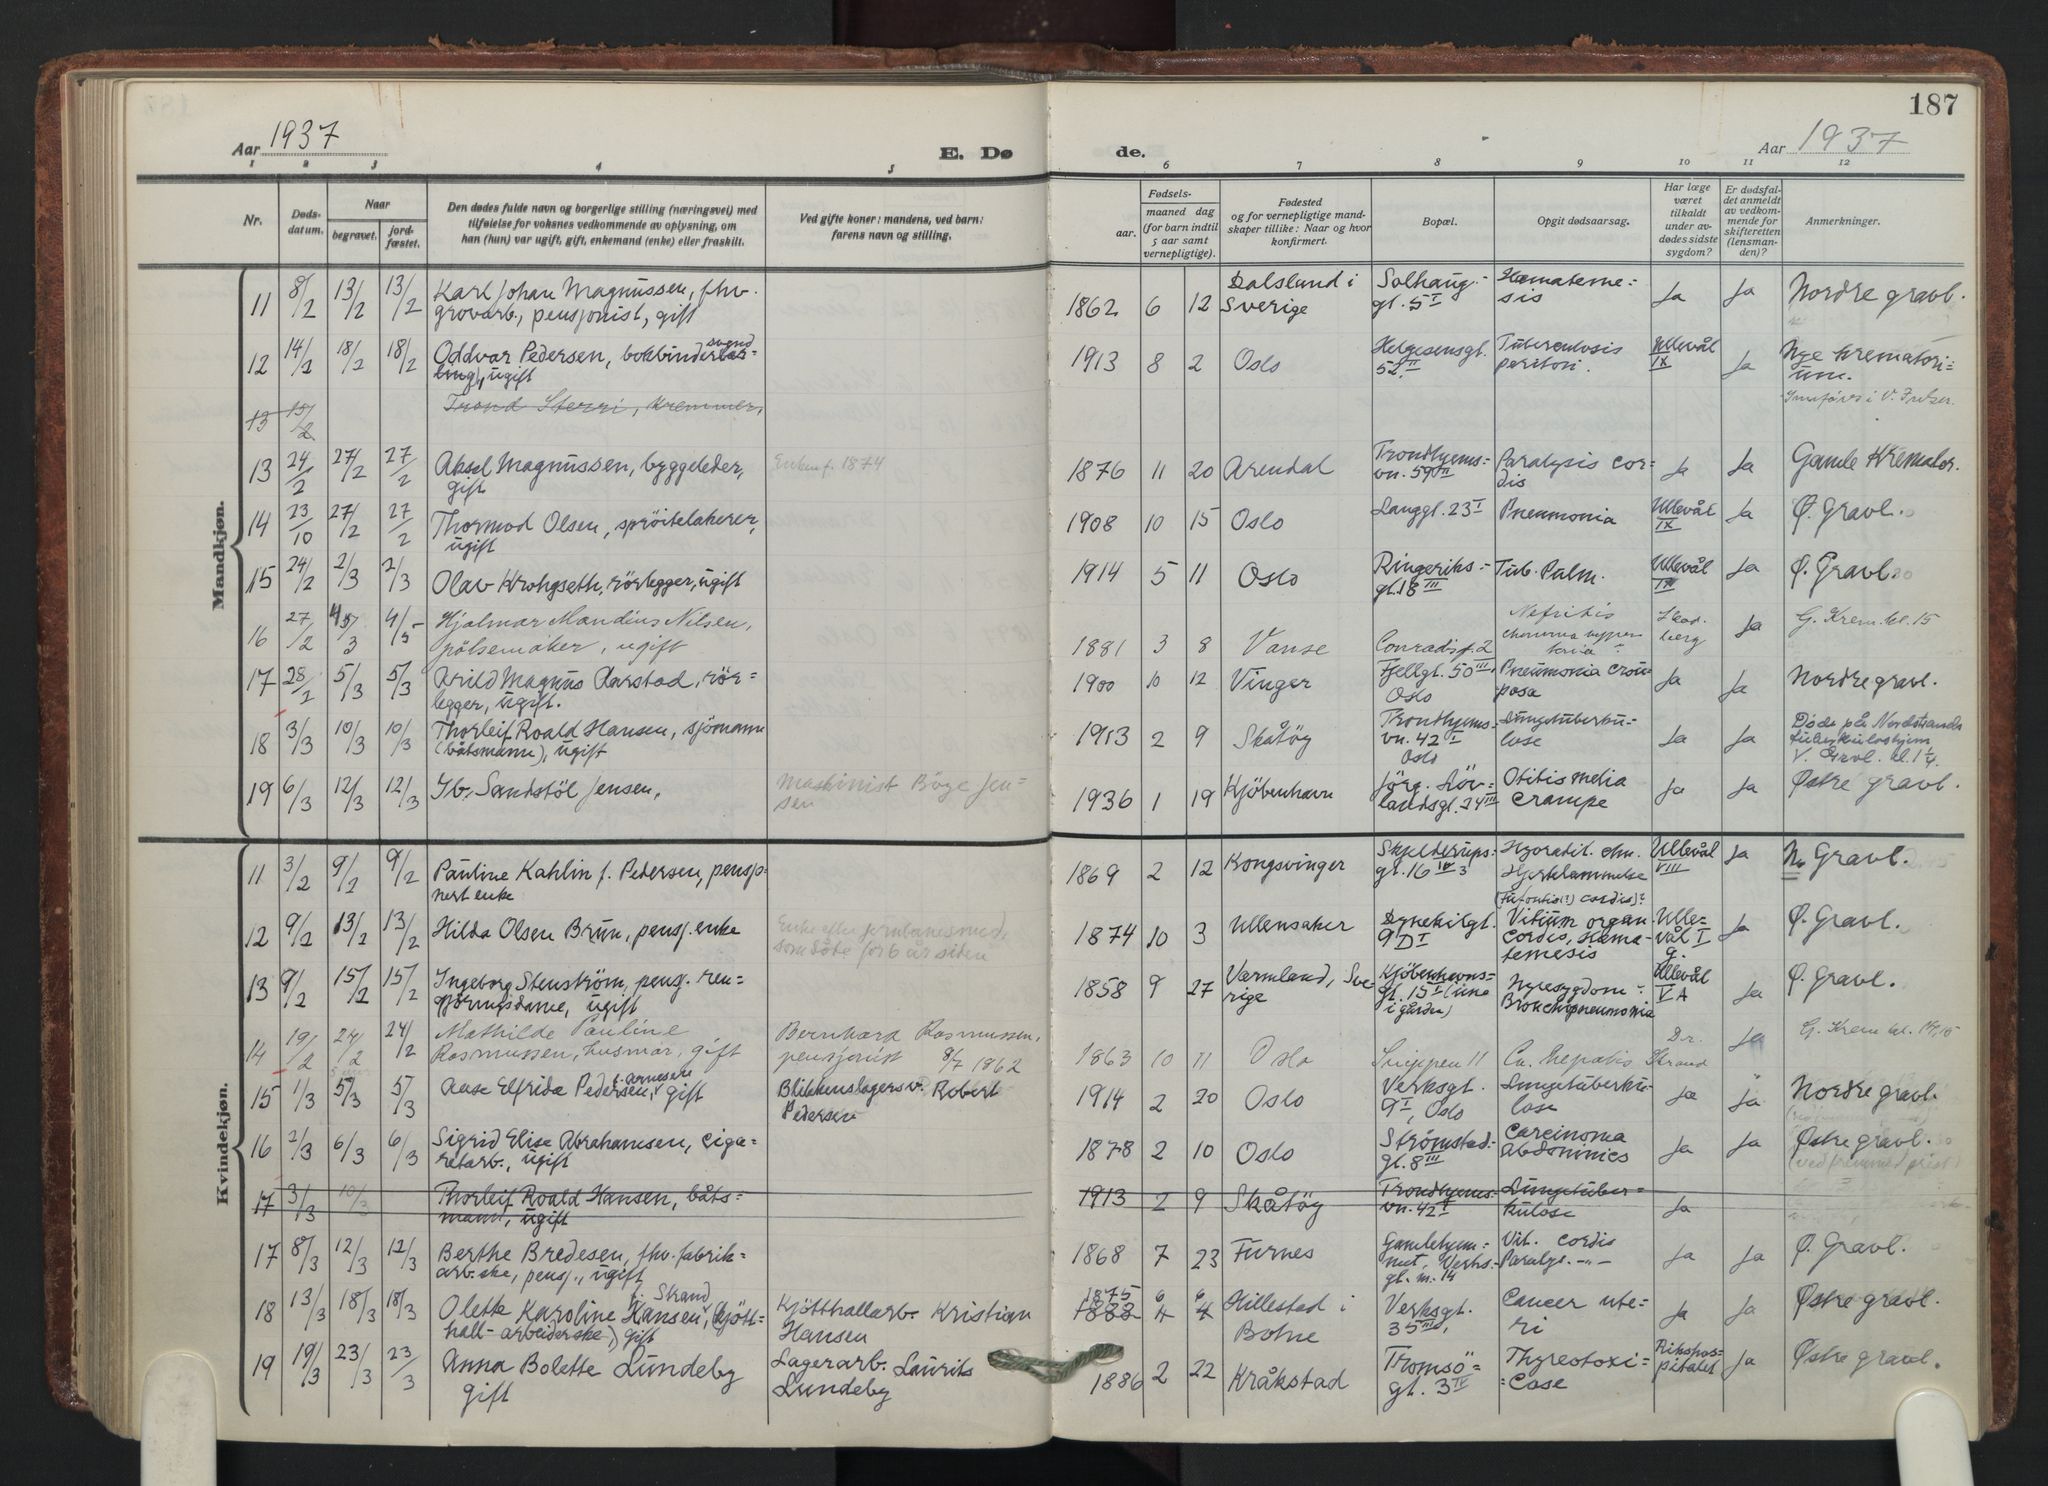 187
Aar 1937
E. Dø
de.
Aar 1937
1 2 3 4 5 6 7 8 9 10 11 12
Nr.
Døds-
datum.
Naar
begravet.
jord-
fæstet.
Den dødes fulde navn og borgerlige stilling (næringsvei) med
tilføielse for voksnes vedkommende av oplysning, om
han (hun) var ugift, gift, enkemand (enke) eller fraskilt.
Ved gifte koner: mandens, ved barn:
farens navn og stilling.
Fødsels-
aar.
maaned dag
(for barn indtil
5 aar samt
vernepligtige).
Fødested
og for vernepligtige mand-
skaper tillike: Naar og hvor
konfirmert.
Bopæl.
Opgit dødsaarsag.
Har læge
været
tilkaldt
under av-
dødes sidste
sygdom?
Er dødsfal-
det anmeldt
av vedkom-
mende for
skifteretten
(lensman-
den)?
Anmerkninger.
Mandkjøn.
11 8/2 13/2 13/2 Karl Johan Magnussen, fhv. grovarb., pensjonist, gift 1862 6 12 Dalsland i Sverige Solhaug-gl. 5 I Hæmateme-sis Ja Ja Nordre gravl.
12 14/2 18/2 18/2 Oddvar Pedersen, bokbindersvend ugift 1913 8 2 Oslo Helgesensgt. 52 II Tuberculosis peritoni. Ullevål IX Ja Nye Krematori-um.
13 15/2 Trond Sterri, Kremmer,
13 24/2 27/2 27/2 Aksel Magnussen, byggeleder, gift Enke f. 1874 1876 11 20 Arendal Trondhjems-vn. 59 II Paralysis cor-dis Ja Ja Gamle Kremator.
14 23/10 27/2 27/2 Thormod Olsen, sprøitelakerer, ugift 1908 10 15 Oslo Langgt. 23 I Pneumonia Ullevål IX Ja Ø. Gravl.
15 24/2 2/3 2/3 Olav Krohgseth, rörlegger, ugift 1914 5 11 Oslo Ringeriks-gt. 18 III Tub. Pulm. Ullevål Ja Ø. Gravl.
16 27/2 Hjalmar Mandius Nilsen, pölsemaker, ugift 1881 3 8 Vanse Conradis g. 2 Nefritis Ja G. Krem. kl. 15
17 28/2 5/3 5/3 Arild Magnus Aarstad, rör-legger, ugift. 1900 10 12 Vinger Fjellgt. 50 III, Oslo Pneumonia crou-posa Ja Ja Nordre gravl.
18 3/3 10/3 10/3 Thorleif Roald Hansen, sjömann (båtsmann), ugift 1913 2 9 Skåtöy Trondhjems-vn. 42 I Oslo Lungetuberku-lose Ja Ja Döde på Nordstrands tuberkuloshjem V. Gravl. kl. 1 1/4
19 6/3 12/3 12/3 Ib. Sandstöl Jensen, Maskinist Böge Jen-sen 1936 1 19 Kjöbenhavn Jörg. Löv-landsgt. 24 III Otitis media Crampe Ja Ja Østre gravl.
Kvindekjøn.
11 3/2 9/2 9/2 Pauline Kahlin f. Pedersen, pensjo-nert enke 1869 2 12 Kongsvinger Skjelderups-gt. 16 IV Hjertelammelse Ullevål VIII Ja N. Gravl.
12 9/2 13/2 13/2 Hilda Olsen Brun, pensj. enke Enke efter jernbanesmed, som döde for 6 år siden 1874 10 3 Ullensaker Dynekilgt. 9 D I Vitium organ. cordis, Hæma-temesis Ulle-vål I g. Ja Ø. Gravl.
13 9/2 15/2 15/2 Ingeborg Stenström, pens. ren-gjöringsdame, ugift 1858 9 27 Värmland, Sve-rige Kjöbenhavns-gt. 15 I (inne i gården) Nyresygdom Bronchopneumonia Ullevål V A Ja Ø. Gravl.
14 19/2 24/2 24/2 Mathilde Pauline Rasmussen, husmor, gift Bernhard Rasmussen, pensjonist 8/7 1862 1863 10 11 Oslo Snippen 11 Ca. hepatis Dr. Strand Ja G. Krem kl. 14,15
15 1/3 5/3 5/3 Aase Elfrida Pedersen, f. Arnesen gift Blikkenslagersv. Robert Pedersen 1914 2 20 Oslo Verksgt. 9 I, Oslo Lungetuberku-lose Ja Ja Nordre gravl.
16 2/3 6/3 6/3 Sigrid Elise Abrahamsen, ciga-retarb., ugift 1878 2 10 Oslo Strömstad-gt. 8 III Carcinoma abdominies Ja Ja Østre gravl. (ved fremmed prest)
17 3/3 10/3 Thorleif Roald Hansen, båts-mann, ugift 1913 2 9 Skåtöy Trondhjems-vn. 42 I Lungetuber-kulose Ja
17 8/3 12/3 12/3 Berthe Bredesen, fhv. fabrik-arb.ske, pensj., ugift 1868 7 23 Furnes Gamlehjem-met, Verks-gt. m. 14 Vit. cordis Paralys. -"- Ja Ja Ø. Gravl.
18 13/3 18/3 18/3 Olette Karoline Hansen, f. Strand (kjött-hall-arbeiderske) gift Kjötthallarb. Kristian Hansen 1875 1888 6 4 6 4 Hillestad i Botne Verksgt. 35 III, Cancer ute-ri Ja Ja Østre gravl.
19 19/3 23/3 23/3 Anna Bolette Lundeby gift Lagerarb. Laurits Lundeby 1886 2 22 Kråkstad Tromsö-gt. 3 IV Thyreotoxi-cose Rikshos-pitalet Ja Østre gravl.